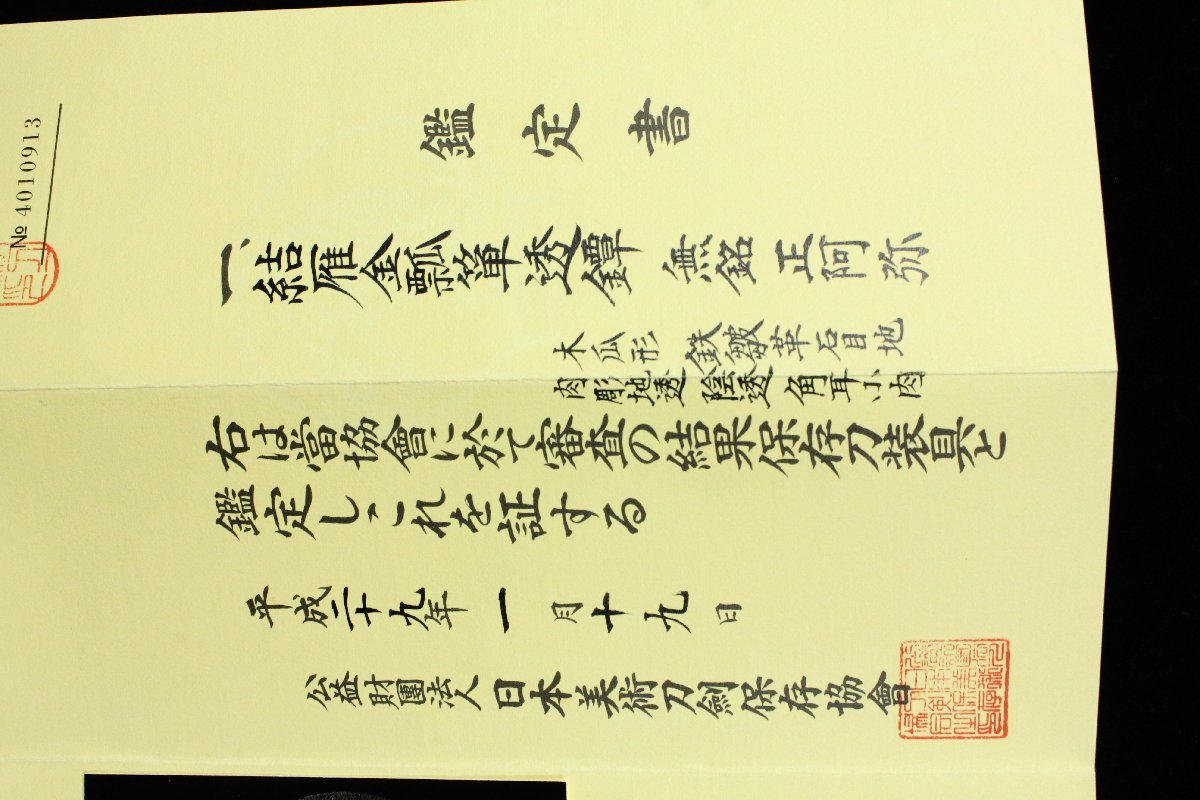 № 4010913
鑑定書
一、結雁金瓢箪透鐔 無銘 正阿弥
木瓜形 鉄皺革石目地
肉彫地透 陰透 角耳小肉
右は當協會に於て審査の結果保存刀装具と
鑑定しこれを証する
平成二十九年一月十九日
公益財團法人日本美術刀劍保存協會